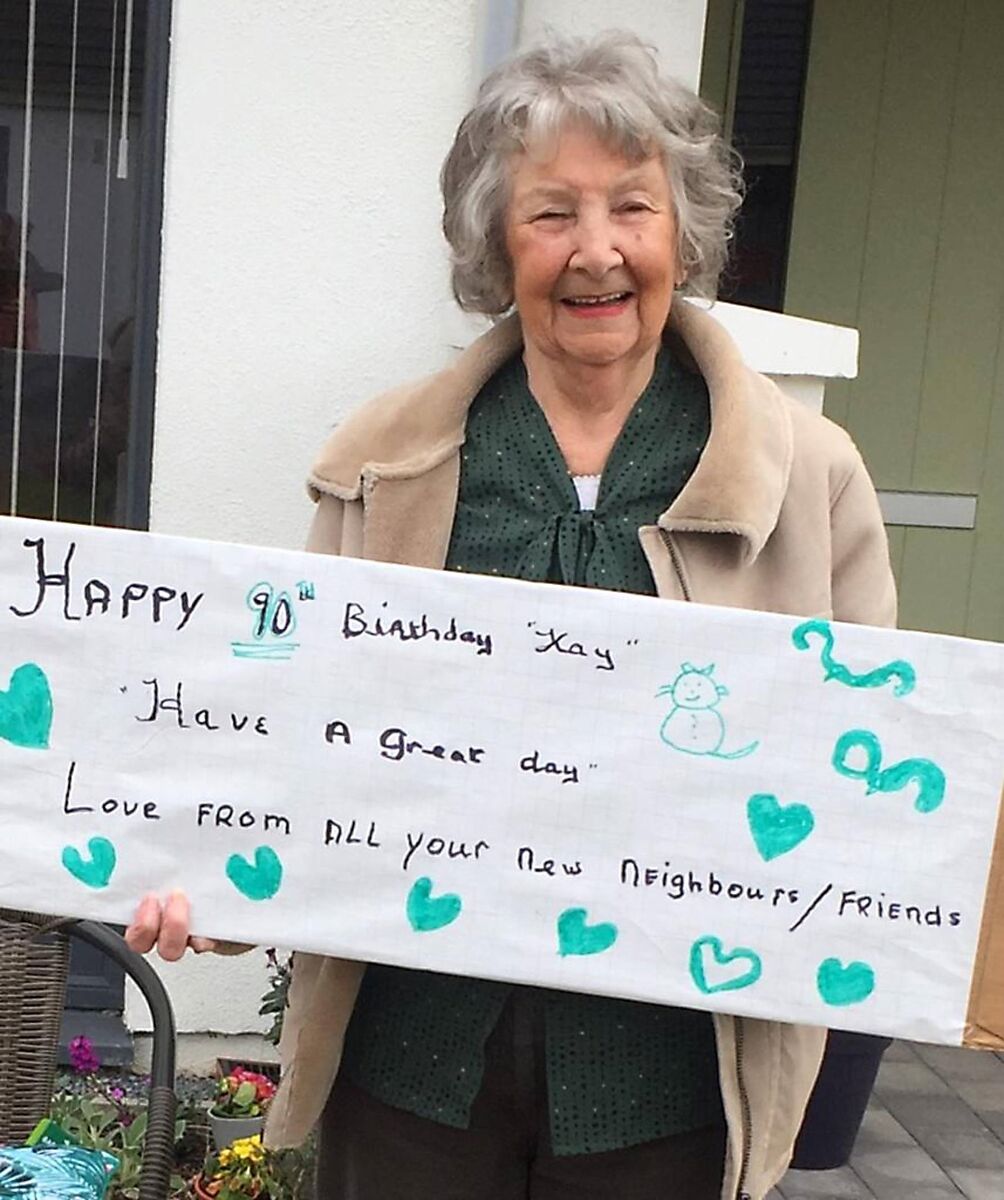 Happy 90TH Birthday "Kay"
"Have A great day"
Love From All your new Neighbours/Friends